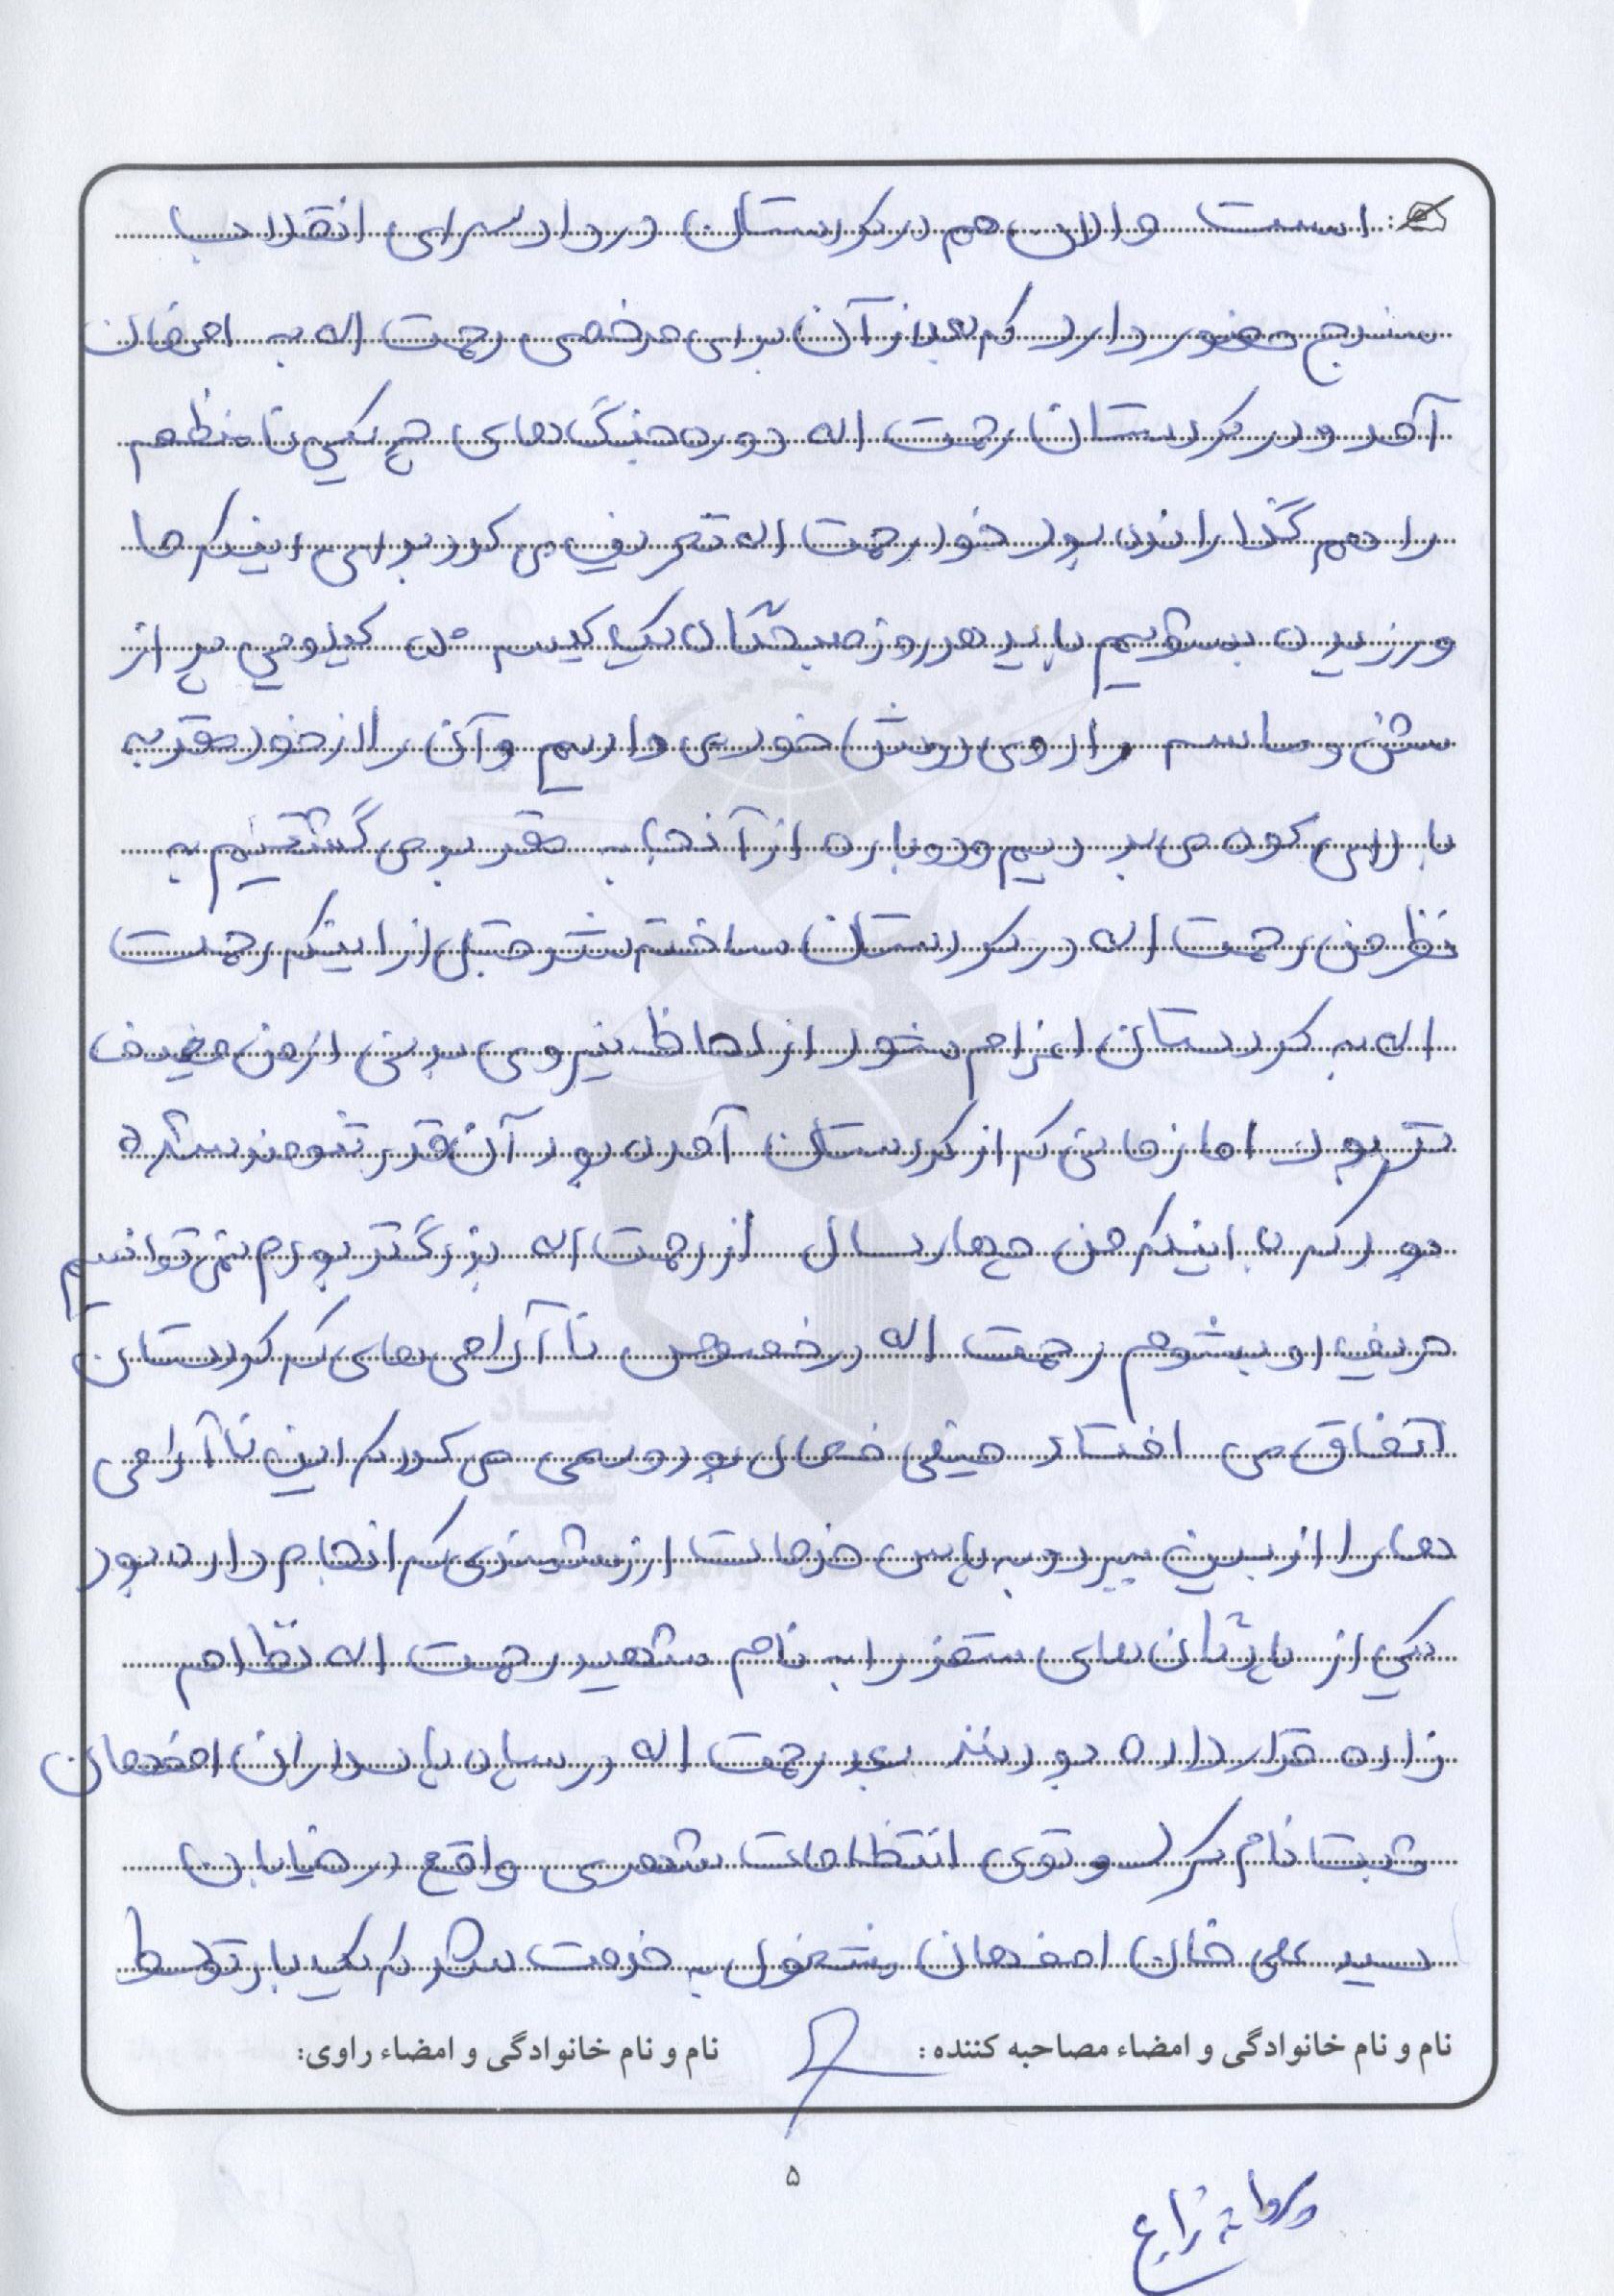 است والان هم در کردستان در دادسرای انقلاب
سنندج حضور دارد که بعد از آن برای مرخصی رحمت اله به اصفهان
آمد و در کردستان رحمت اله دوره جنگ های چریکی نامنظم
را هم گذرانده بود خود رحمت اله تعریف می کرد برای اینکه ما
ورزیده بشویم باید هر روز صبحگاه یک کیسه ۵۰ کیلویی پر از
شن و ماسه را روی دوش خود می داریم و آن را از خود مقر به
بالای کوه می بردیم و دوباره از آنجا به مقر بر می گشتیم به
نظر من رحمت اله در کردستان ساخته شد و قبل از اینکه رحمت
اله به کردستان اعزام شود از لحاظ نیروی بدنی از من ضعیف
تر بود اما زمانی که از کردستان آمده بود آن قدر تنومند شده
بود که با اینکه من چهار سال از رحمت اله بزرگتر بودم نمی توانسیم
حریف او بشوم رحمت اله در خصوص نا آرامی های که کردستان
اتفاق می افتاد خیلی فعال بود و سعی می کرد که این نا آرامی
ها را از بین ببرد و به پاس خدمات ارزشمندی که انجام داده بود
یکی از پادگان های سقز را به نام شهید رحمت اله نظام
زاده قرار داده بودند بعد رحمت اله در سپاه پاسداران اصفهان
ثبت نام کرد و توی انتظامات شهری واقع در خیابان
سید علی خان اصفهان مشغول به خدمت شد که یک بار توسط
نام و نام خانوادگی و امضاء مصاحبه کننده: نام و نام خانوادگی و امضاء راوی:
۵